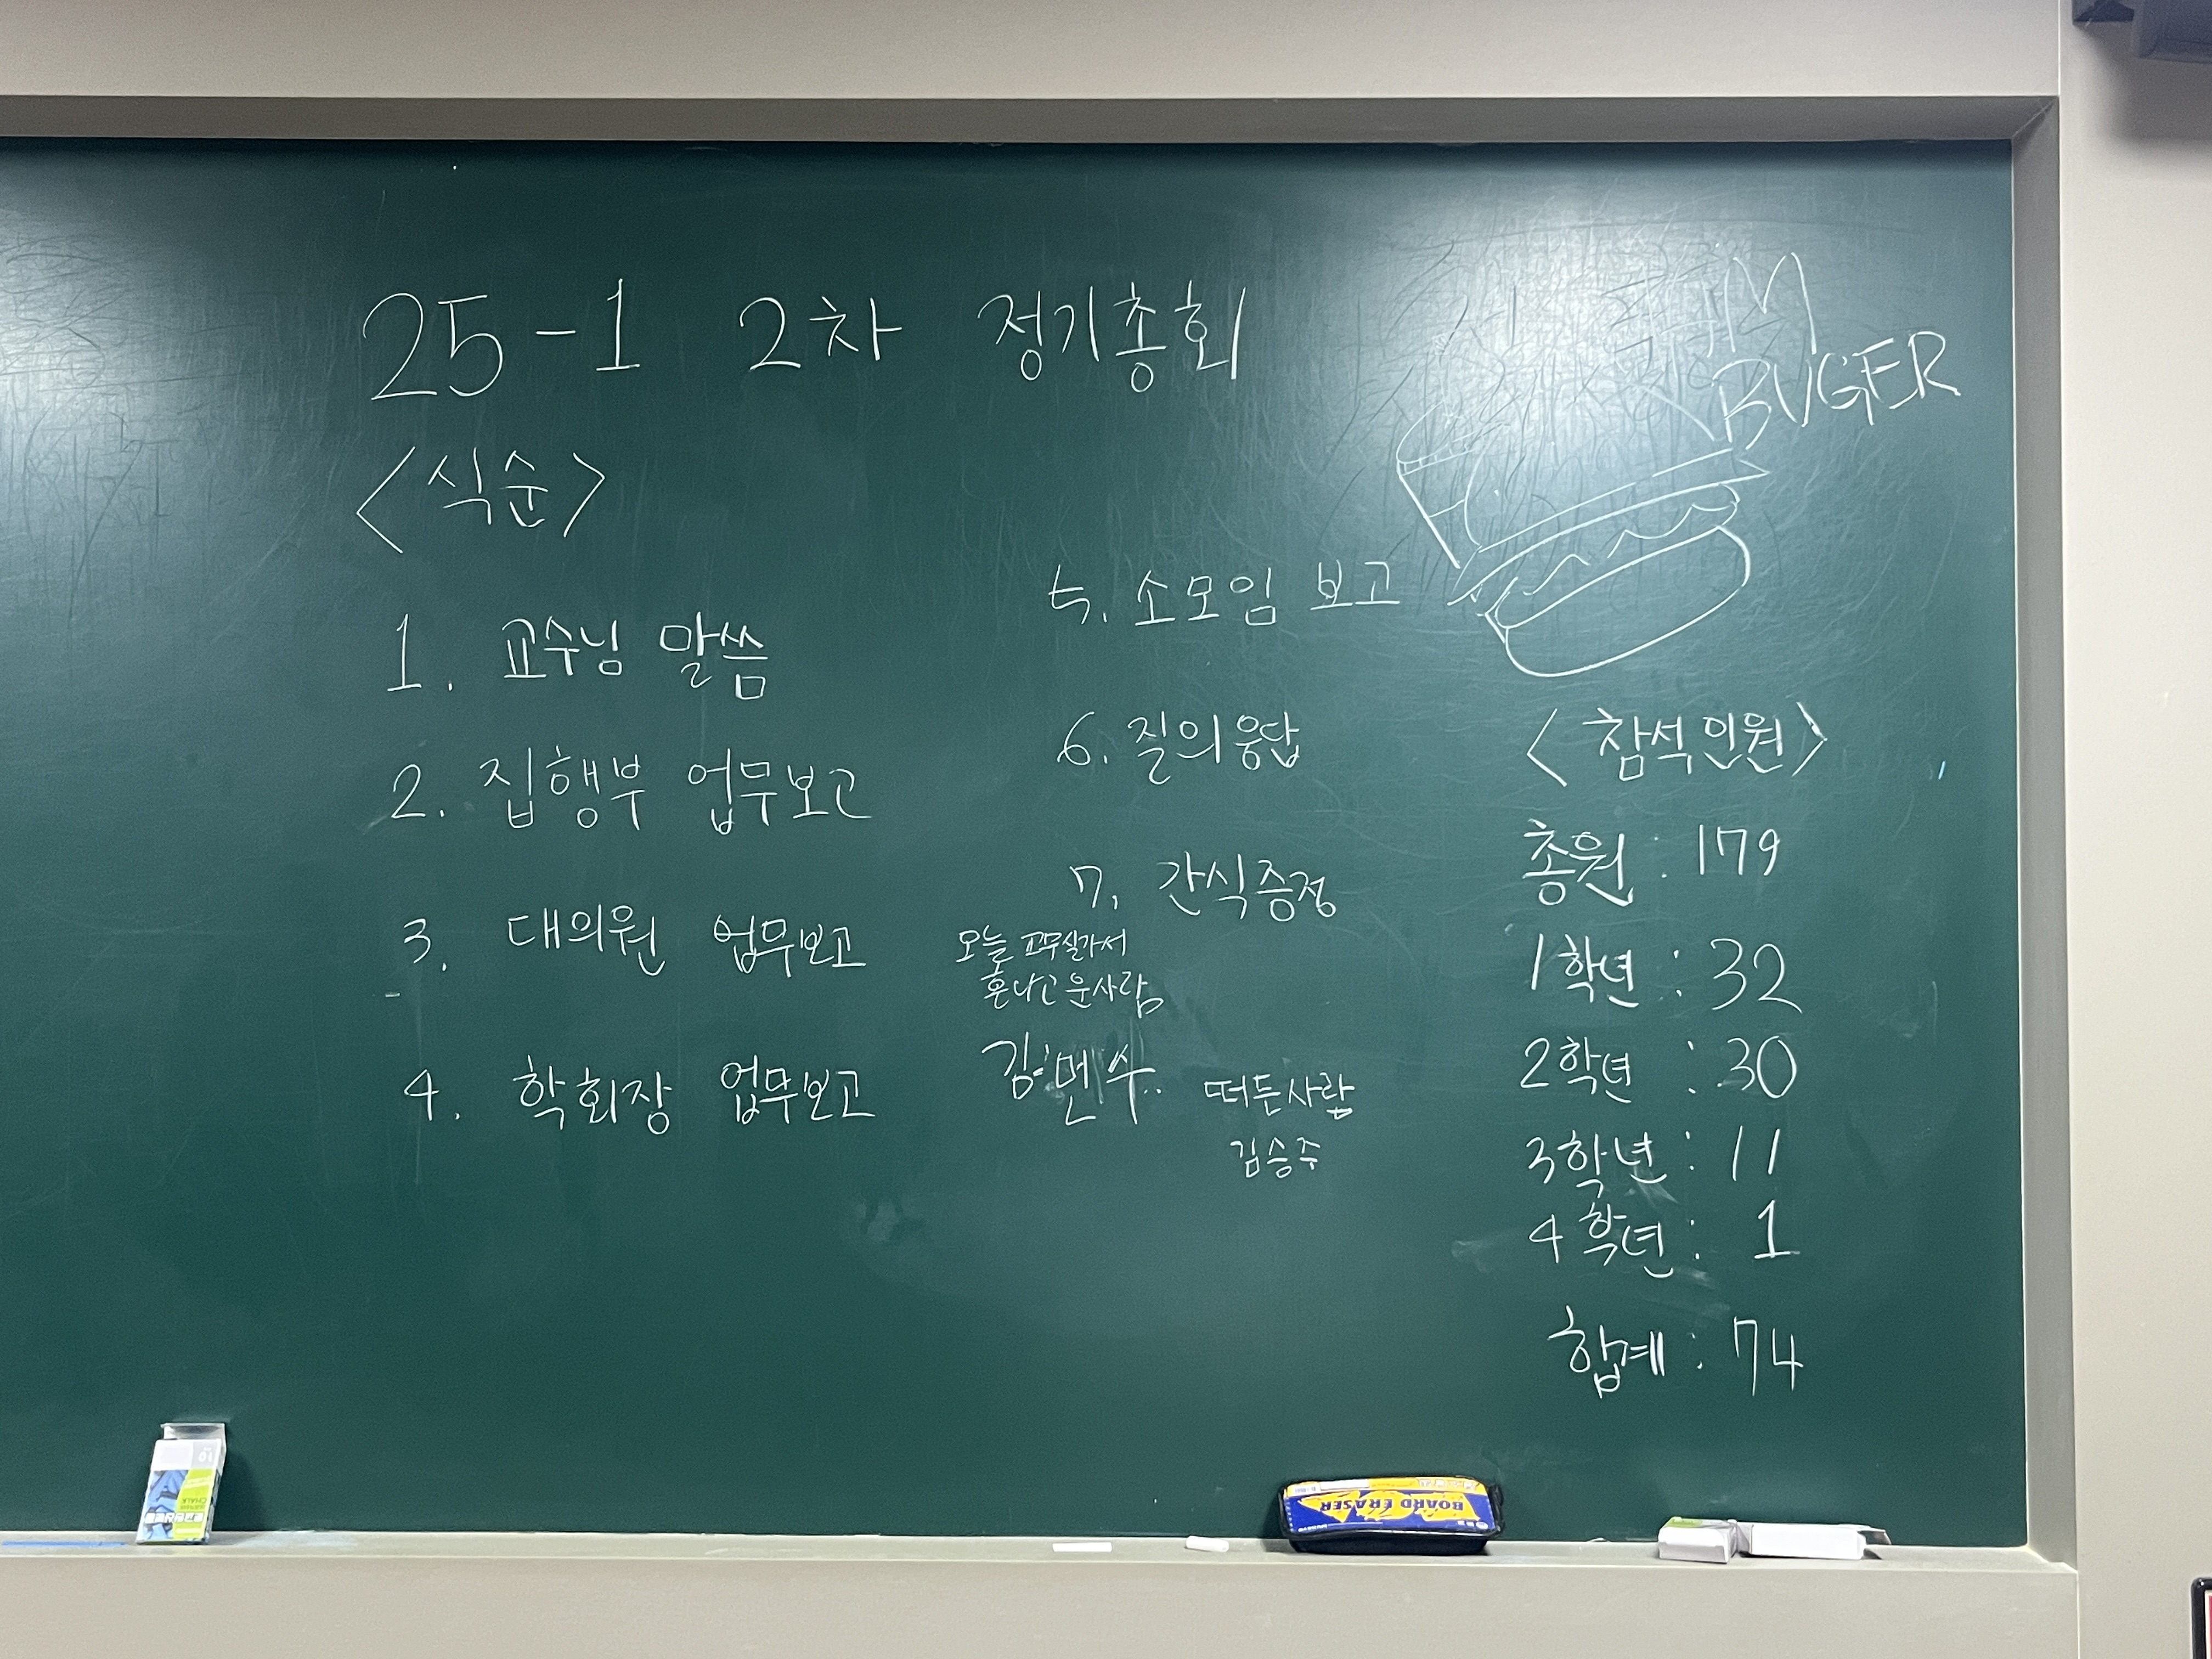 25-1 2차 정기총회
<식순>
1. 교수님 말씀
2. 집행부 업무보고
3. 대의원 업무보고
4. 학회장 업무보고
5. 소모임 보고
6. 질의응답
7. 간식증정
오늘 교무실가서
혼나고 운사람
김면수
떠든사람
김승주
HAM
BUGER
<참석인원>
총원 : 179
1학년 : 32
2학년 : 30
3학년 : 11
4학년 : 1
합계 : 74
BOARD ERASER
CHALK